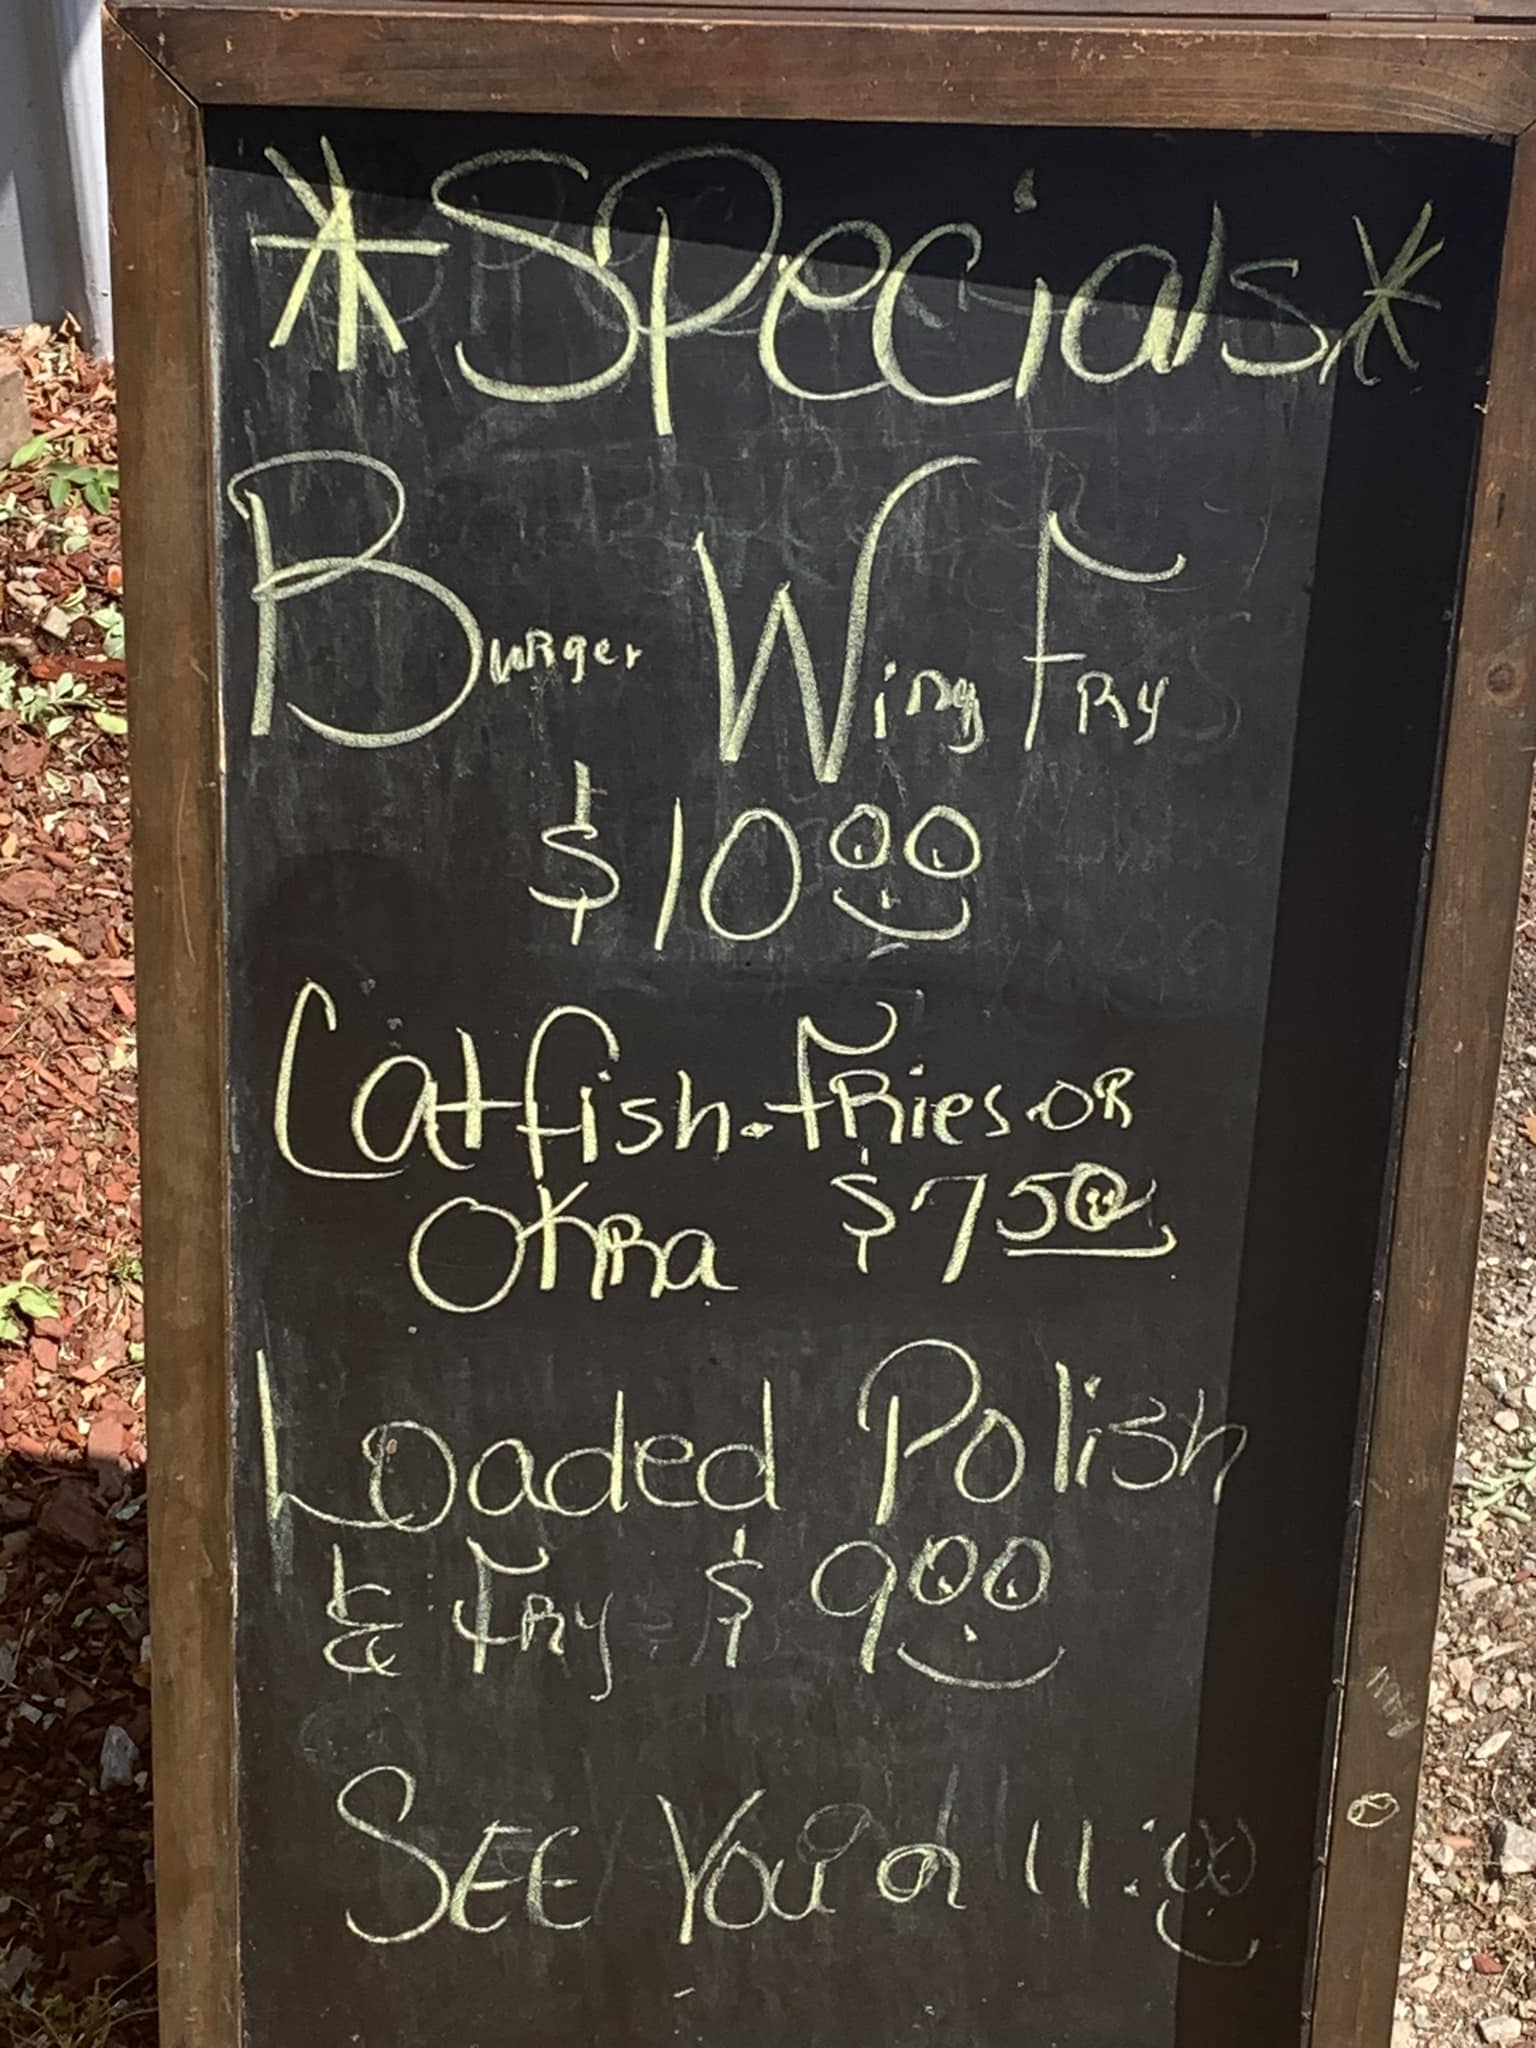 *Specials*
Burger Wing Fry
$10.00
Catfish.Fries or
Okra $7.50
Loaded Polish
& Fry $9.00
See You 11:00